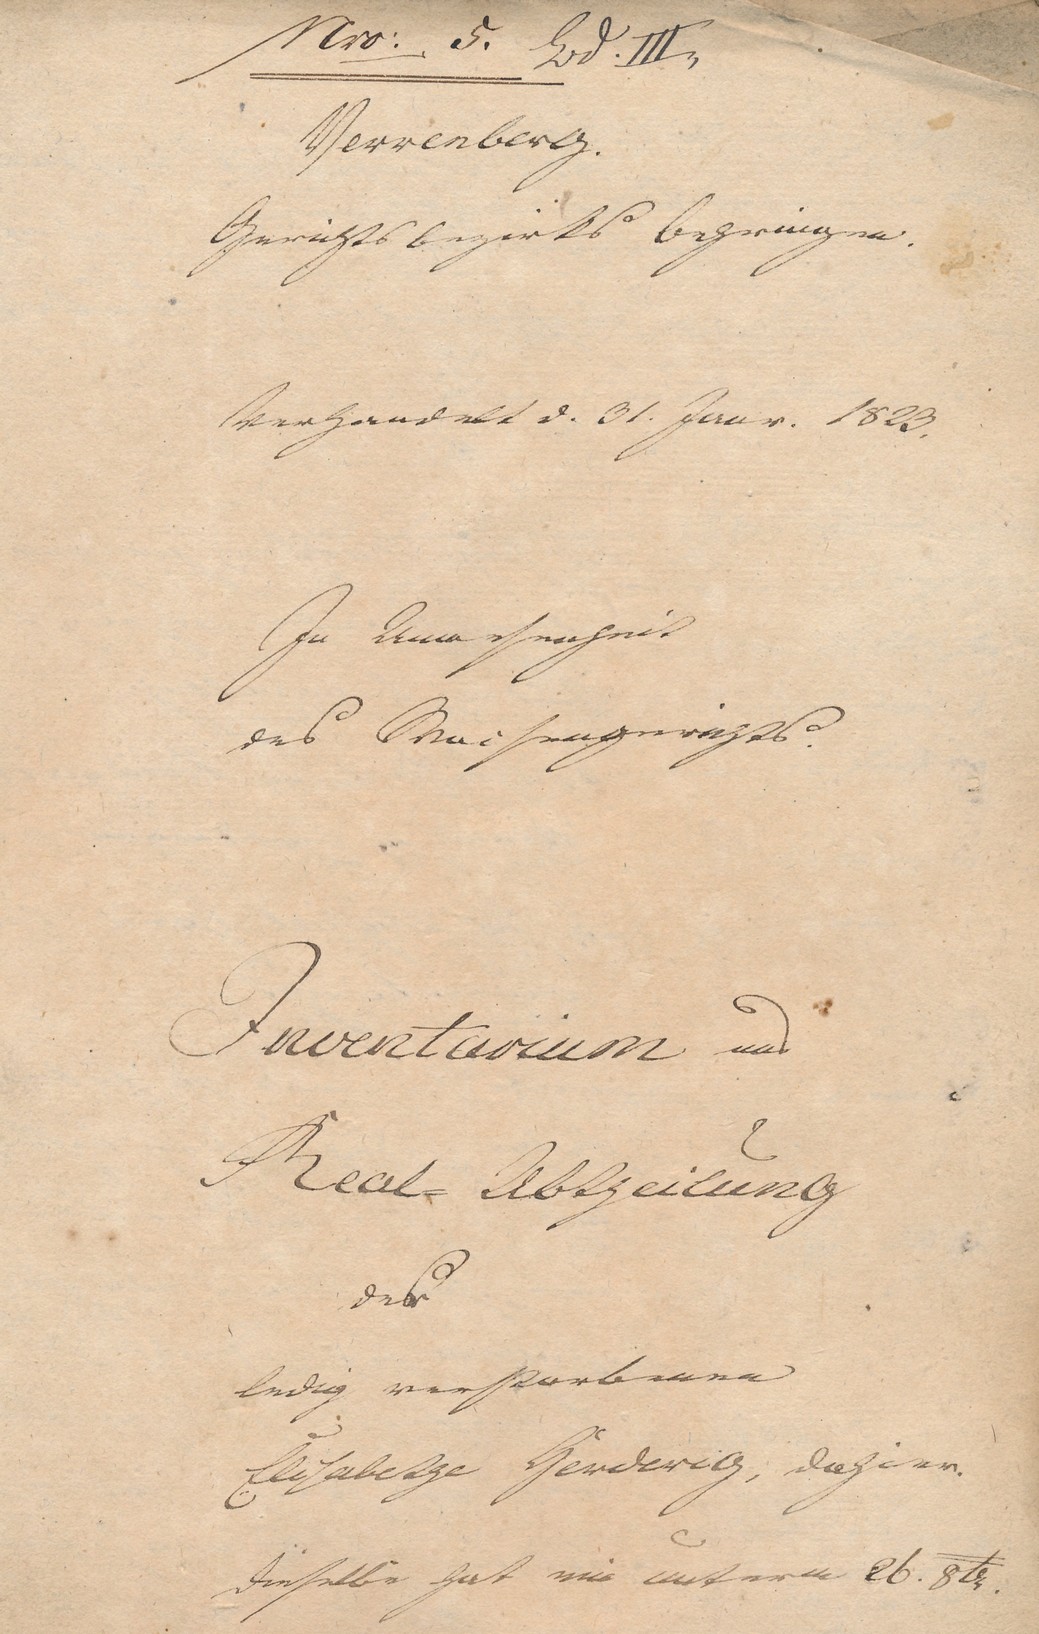 Nro: 5. Bd. III,
Verrenberg.
Gerichtsbezirks Behringen.
Verhandelt d. 31. Janr. 1823.
In Anwesenheit
des Waisengerichts.
Inventarium und
Real- Abtheilung
der
ledig verstorbenen
Elisabethe Herderig, dahier.
Dieselbe hat unterm 26. 8br.